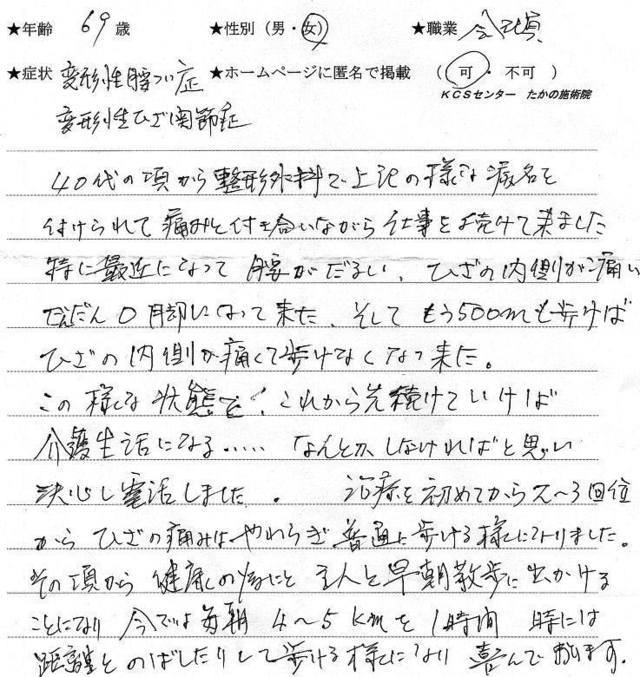 ★年齢 69 歳 ★性別(男・女) ★職業 会社員
★症状 変形性腰つい症 ★ホームページに匿名で掲載 (可・不可)
KCSセンター たかの施術院
変形性ひざ関節症
40代の頃から整形外科で上記の様な病名を
付けられて痛みと付き合いながら仕事を続けて来ました
特に最近になって腰がだるい、ひざの内側が痛い
だんだんO脚になって来た、そしてもう500mも歩けば
ひざの内側が痛くて歩けなくなって来た。
この様な状態で、これから先続けていけば
介護生活になる・・・・・なんとかしなければと思い
決心し電話しました。 治療を初めてから2〜3回位
からひざの痛みはやわらぎ普通に歩ける様になりました。
その頃から健康の為にと主人と早朝散歩に出かける
ことになり今では毎朝4〜5kmを1時間 時には
距離をのばしたりして歩ける様になり喜んでおります。